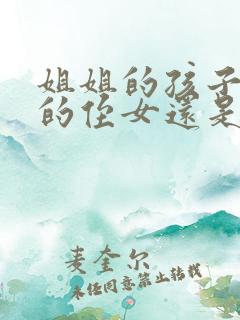 姐姐的孩子
的侄女還是
麦奎尔
未经同意禁止转载